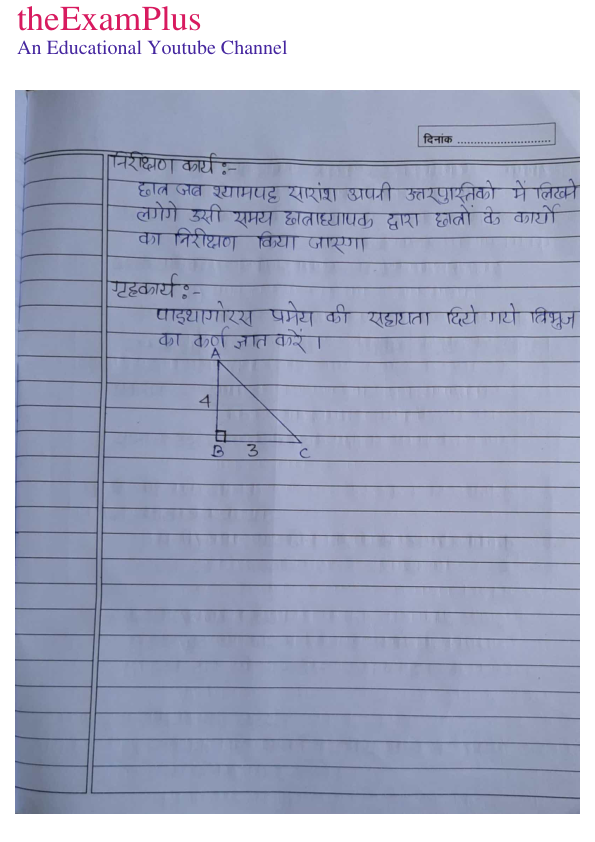 theExamPlus
An Educational Youtube Channel
दिनांक ............................
निरीक्षण कार्य :-
छात्र जब श्यामपट्ट सारांश अपनी उत्तरपुस्तिको में लिखने
लगेगे उसी समय छात्राध्यापक द्वारा छात्रों के कार्यो
का निरीक्षण किया जाएगा
गृहकार्य :-
पाइथागोरस प्रमेय की सहायता दिये गये त्रिभुज
का कर्ण ज्ञात करें ।
A
4
B 3 C